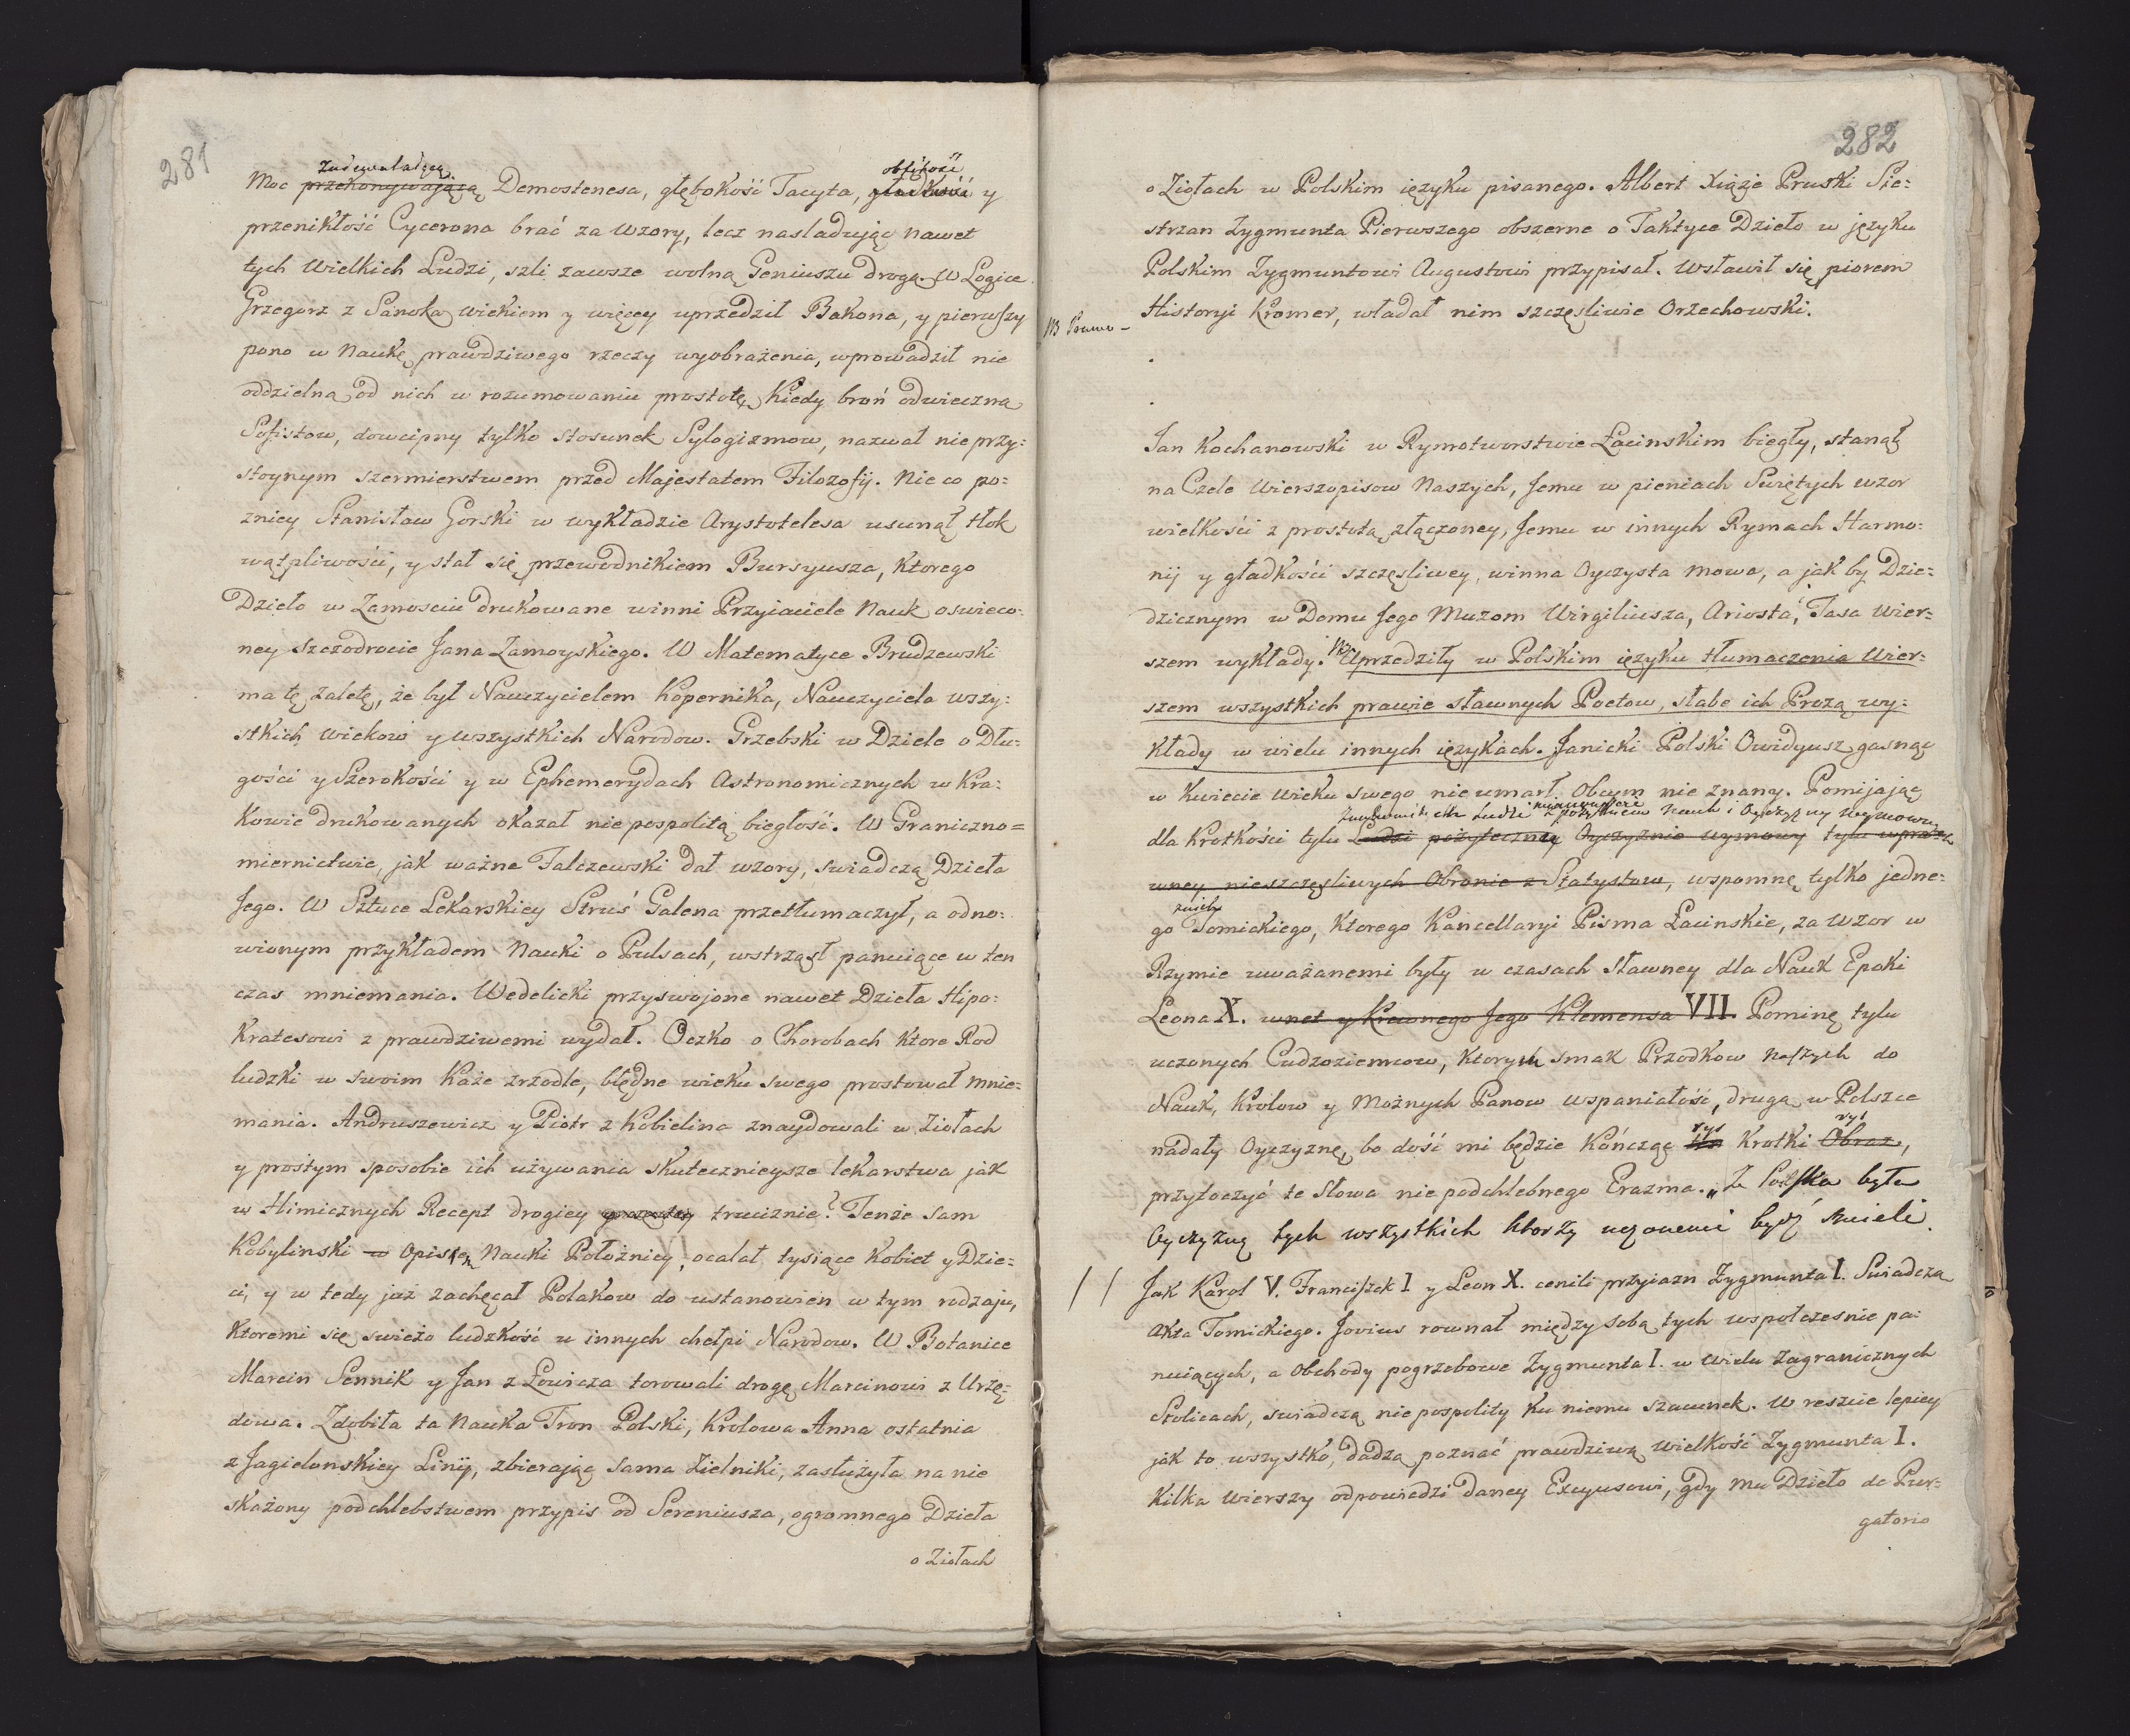 281
zadziwiaiącą obfitość
Moc przekonywaiącą Demostenesa, głębokość Tacyta, gładkość y
przenikłość Cycerona brać za wzory, lecz nasladując nawet
tych Wielkich Ludzi, szli zawsze wolną Geniuszu drogą. W Logice
Grzegorz z Sanoka wiekiem y więcey uprzedził Bakona, y pierwszy
pono w Naukę prawdziwego rzeczy wyobrażenia, wprowadził nie
oddzielną od nich w rozumowaniu prostotę, Kiedy broń odwieczną
Sofistow, dowcipny tylko stosunek Sylogizmow, nazwał nie przy:
stoynym szermierstwem przed Majestatem Filozofij. Nie co po:
zniey Stanisław Gorski w wykładzie Arystotelesa usunął tłok
wątpliwości, y stał się przewodnikiem Bursyusza, Ktorego
Dzieło w Zamosciu drukowane winni Przyiaciele Nauk oswieco:
ney szczodrocie Jana Zamoyskiego. W Matematyce Brudzewski
ma tę zaletę, że był Nauczycielem Kopernika, Nauczyciela wszy:
stkich wiekow y wszystkich Narodow. Grzebski w Dziele o Dłu:
gości y Szerokości y w Ephemerydach Astronomicznych w Kra:
Kowie drukowanych okazał nie pospolitą biegłość. W Graniczno=
miernictwie, jak ważne Talczewski dał wzory, swiadczą Dzieła
Jego. W Sztuce Lekarskiey Struś Galena przetłumaczył, a odno:
wionym przykładem Nauki o Pulsach, wstrząsł panuiące w ten
czas mniemania. Wedelicki przyswojone nawet Dzieła Hipo:
Kratesowi z prawdziwemi wydał. Oczko o Chorobach Ktore Rod
ludzki w swoim Każe zrzodle, błędne wieku swego prostował mnie:
mania. Andruszewicz y Piotr z Kobielina znaydowali w Ziołach
y prostym sposobie ich używania skutecznieysze lekarstwa jak
w Himicznych Recept drogiey truciznie? Tenże sam
Kobylinski w Opisem Nauki Położniey, ocalał tysiące Kobiet y Dzie=
ci, y w tedy już zachęcał Polakow do ustanowien w tym rodzaju,
Ktoremi się swieżo ludzkość u innych chełpi Narodow. W Botanice
Marcin Sennik y Jan z Łowicza torowali drogę Marcinowi z Urzę:
dowa. Zdobiła ta Nauka Tron Polski, Krolowa Anna ostatnia
z Jagielonskiey Linij, zbierając sama Zielniki, zasłużyła na nie
skażony podchlebstwem przypis od Sereniusza, ogromnego Dzieła
o Ziołach
282
o Ziołach w Polskim ięzyku pisanego. Albert Xiąże Pruski Sie:
strzan Zygmunta Pierwszego obszerne o Taktyce Dzieło w języku
Polskim Zygmuntowi Augustowi przypisał. Wsławił się piorem
Historyi Kromer, władał nim szczęsliwie Orzechowski.
NB Prawo –
Jan Kochanowski w Rymotworstwie Łacinskim biegły, stanął
na Czele Wierszopisow Naszych, Jemu w pieniach Swiętych wzor
wielkości z prostotą złączoney, Jemu w innych Rymach Harmo:
nij y gładkości szczęsliwey, winna Oyczysta mowa, a jak by Dzie:
dzicznym w Domu Jego Muzom Wirgiliusza, Ariosta, Tasa Wier:
szem wykłady. Uprzedziły w Polskim ięzyku tłumaczenia Wier:
szem wszystkich prawie sławnych Poetow, słabe ich Prozą wy:
Kłady w wielu innych ięzykach. Janicki Polski Owidyusz gasnąc
w Kwiecie Wieku swego nie umarł Obcym nie znany. Pomijając
Znakomitych Ludzi z pożytkiem Nauk i Oyczyzny wymową
dla Krotkości tylu Ludzi pożyteczney Oyczyznie wymowy tylu
wney nieszczęsliwych Obronie z Statystow, wspomnę tylko jedne:
z nich
go Tomickiego, Ktorego Kancellaryi Pisma Łacinskie, za wzor w
Rzymie uważanemi były w czasach Sławney dla Nauk Epoki
Leona X. wnet y Krewnego Jego Klemensa VII. Pominę tylu
uczonych Cudzoziemcow, Ktorych smak Przodkow naszych do
Nauk, Krolow y Możnych Panow wspaniałość, drugą w Polszce
rys
nadały Oyczyznę, bo dość mi będzie Kończąc ten Krotki Obraz,
przytoczyć te Słowa nie podchlebnego Erazma. „Ze Polska była
Oyczyzną tych wszystkich ktorzy uczonemi bydź smieli.
// Jak Karol V. Franciszek I y Leon X. cenili przyiazn Zygmunta I. Swiadczą
Akta Tomickiego. Jovius rownał między sobą tych wspołczesnie pa:
nuiących, a Obchody pogrzebowe Zygmunta I. w Wielu Zagranicznych
Stolicach, swiadczą nie pospolity Ku niemu szacunek. W reszcie lepiey
jak to wszystko, dadzą poznać prawdziwą Wielkość Zygmunta I.
Kilka Wierszy odpowiedzi daney Excyusowi, gdy mu Dzieło de Pur=
gatorio